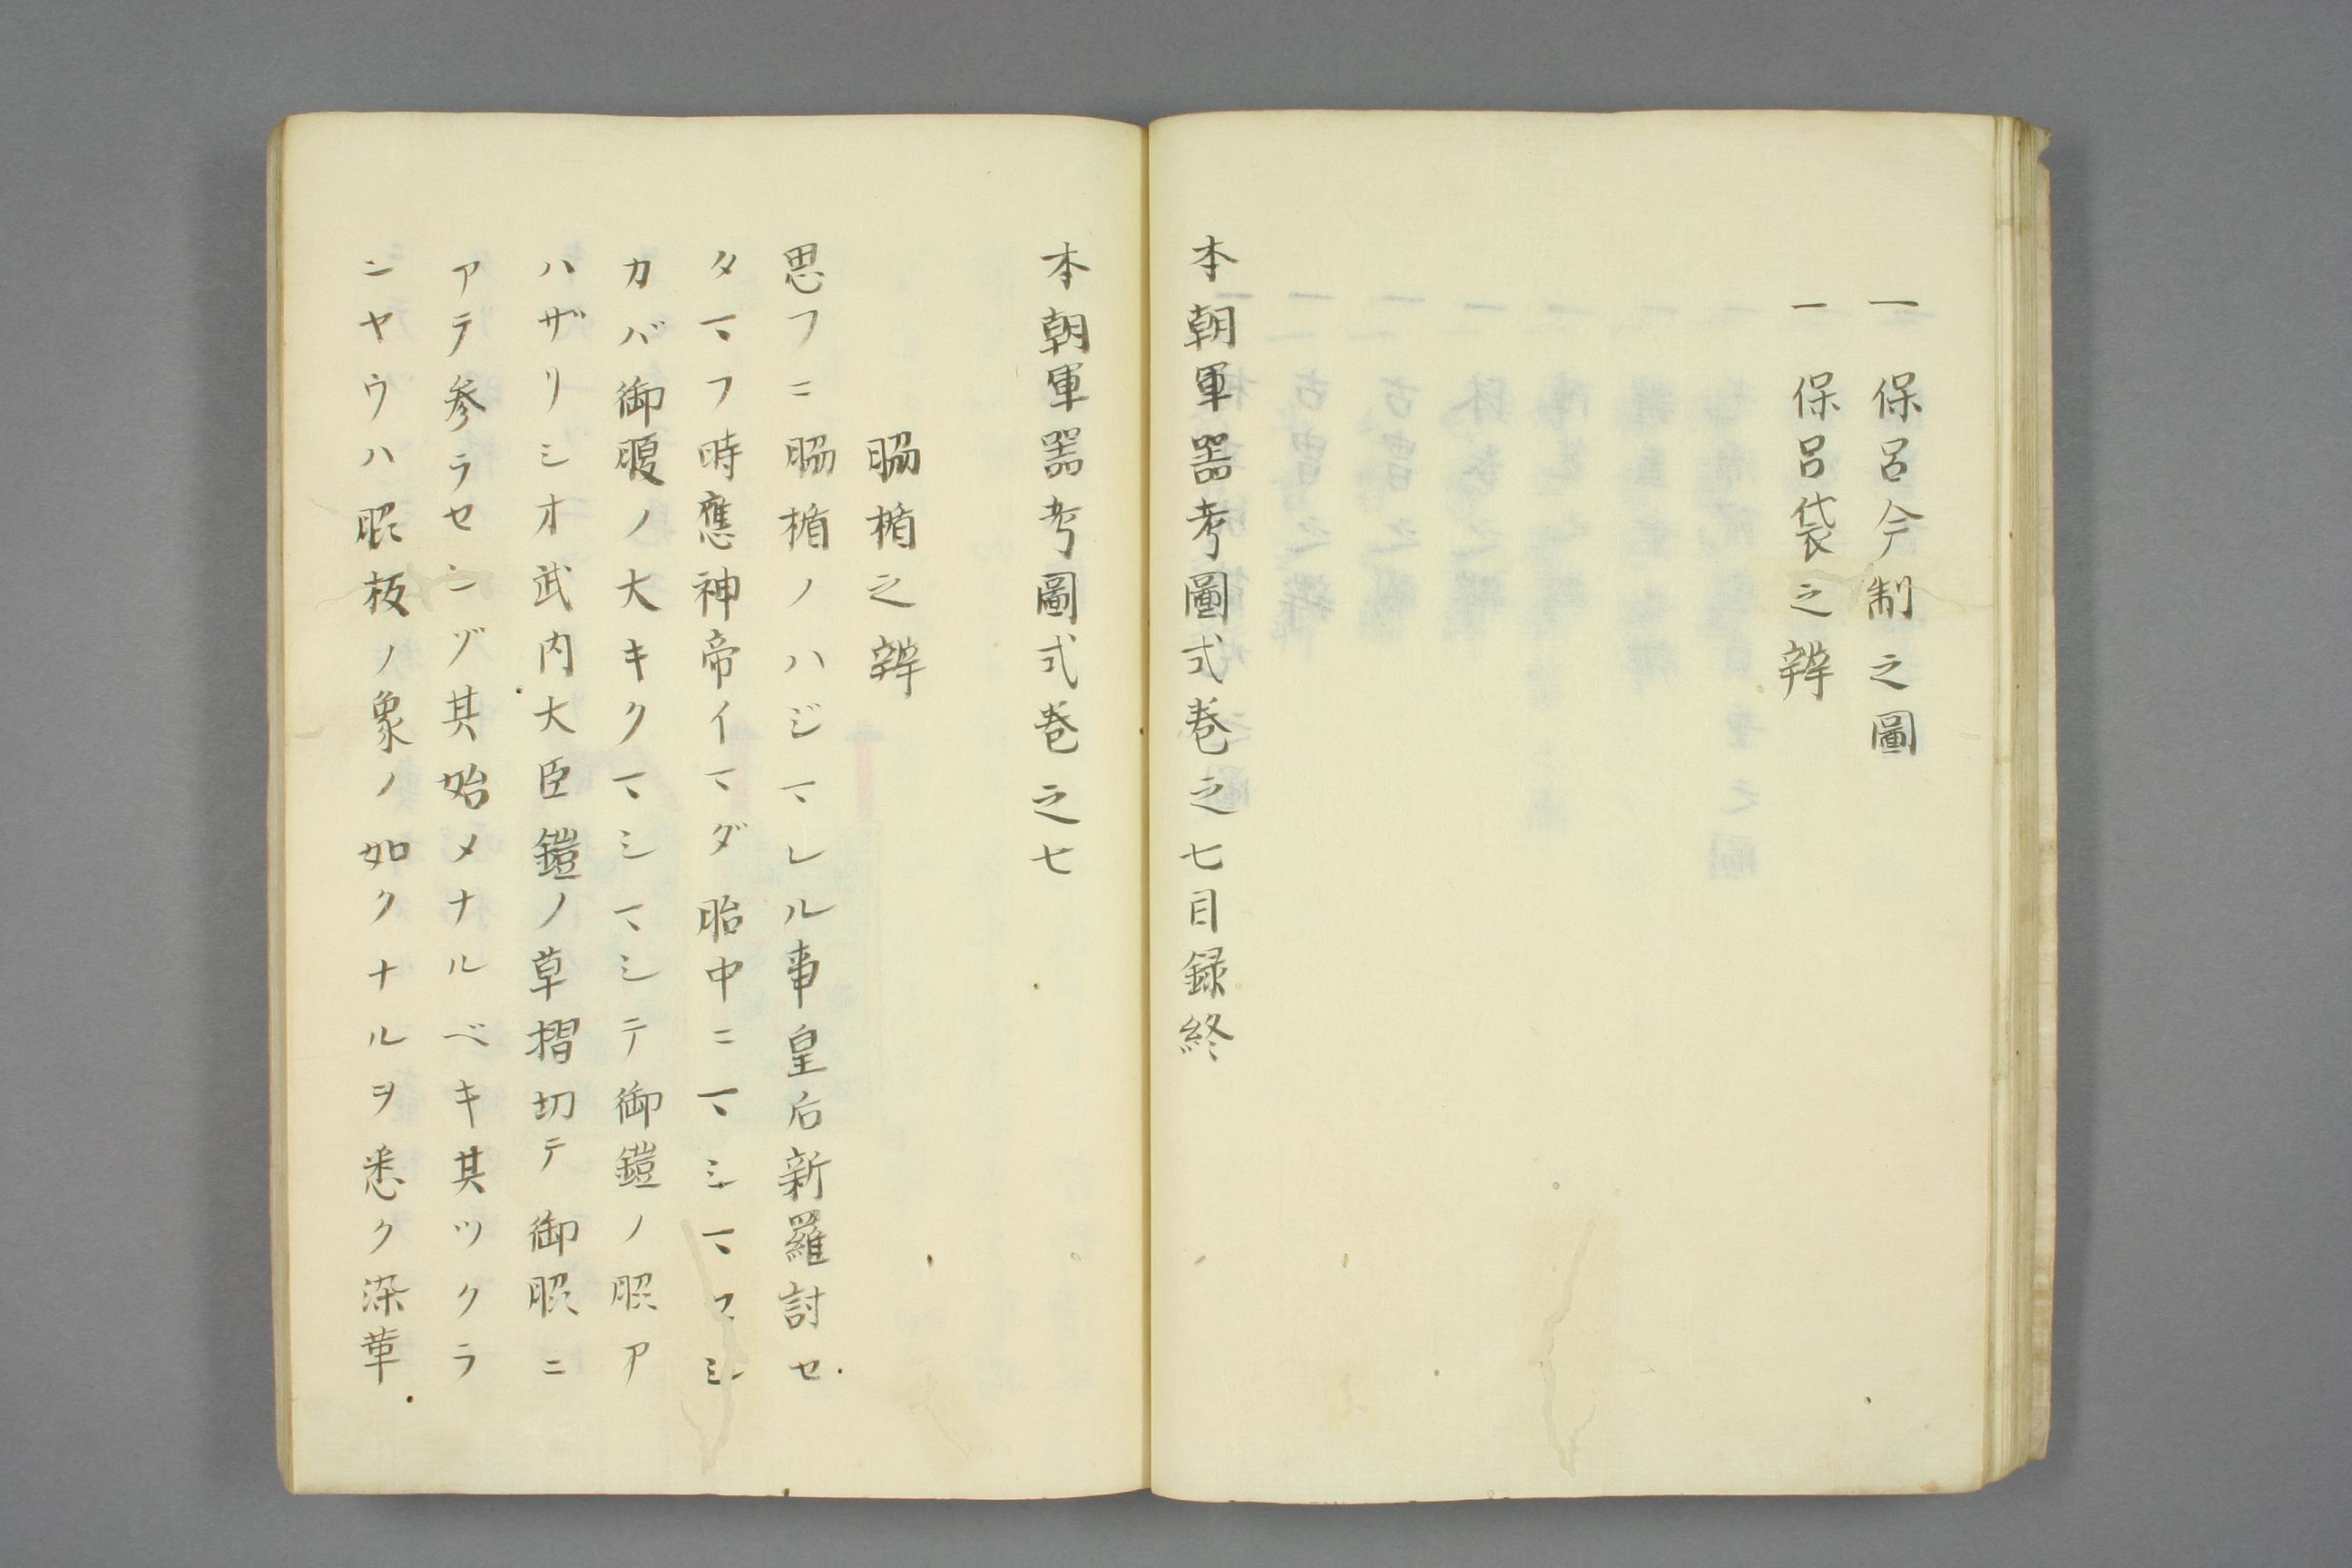 一 保呂今制之圖
一 保呂袋之辨
本朝軍噐考圖式巻之七目録終
本朝軍噐考圖式巻之七
脇楯之辨
思フニ脇楯ノハジマレル事皇后新羅討セ
タマフ時應神帝イマダ胎中ニマシママシ
カバ御腹ノ大キクマシマシテ御鎧ノ脇ア
ハザリシオ武内大臣鎧ノ草摺切テ御脇ニ
アテ参ラセンヅ其始メナルベキ其ツクラ
ンヤウハ脇板ノ象ノ如クナルヲ悉ク染革